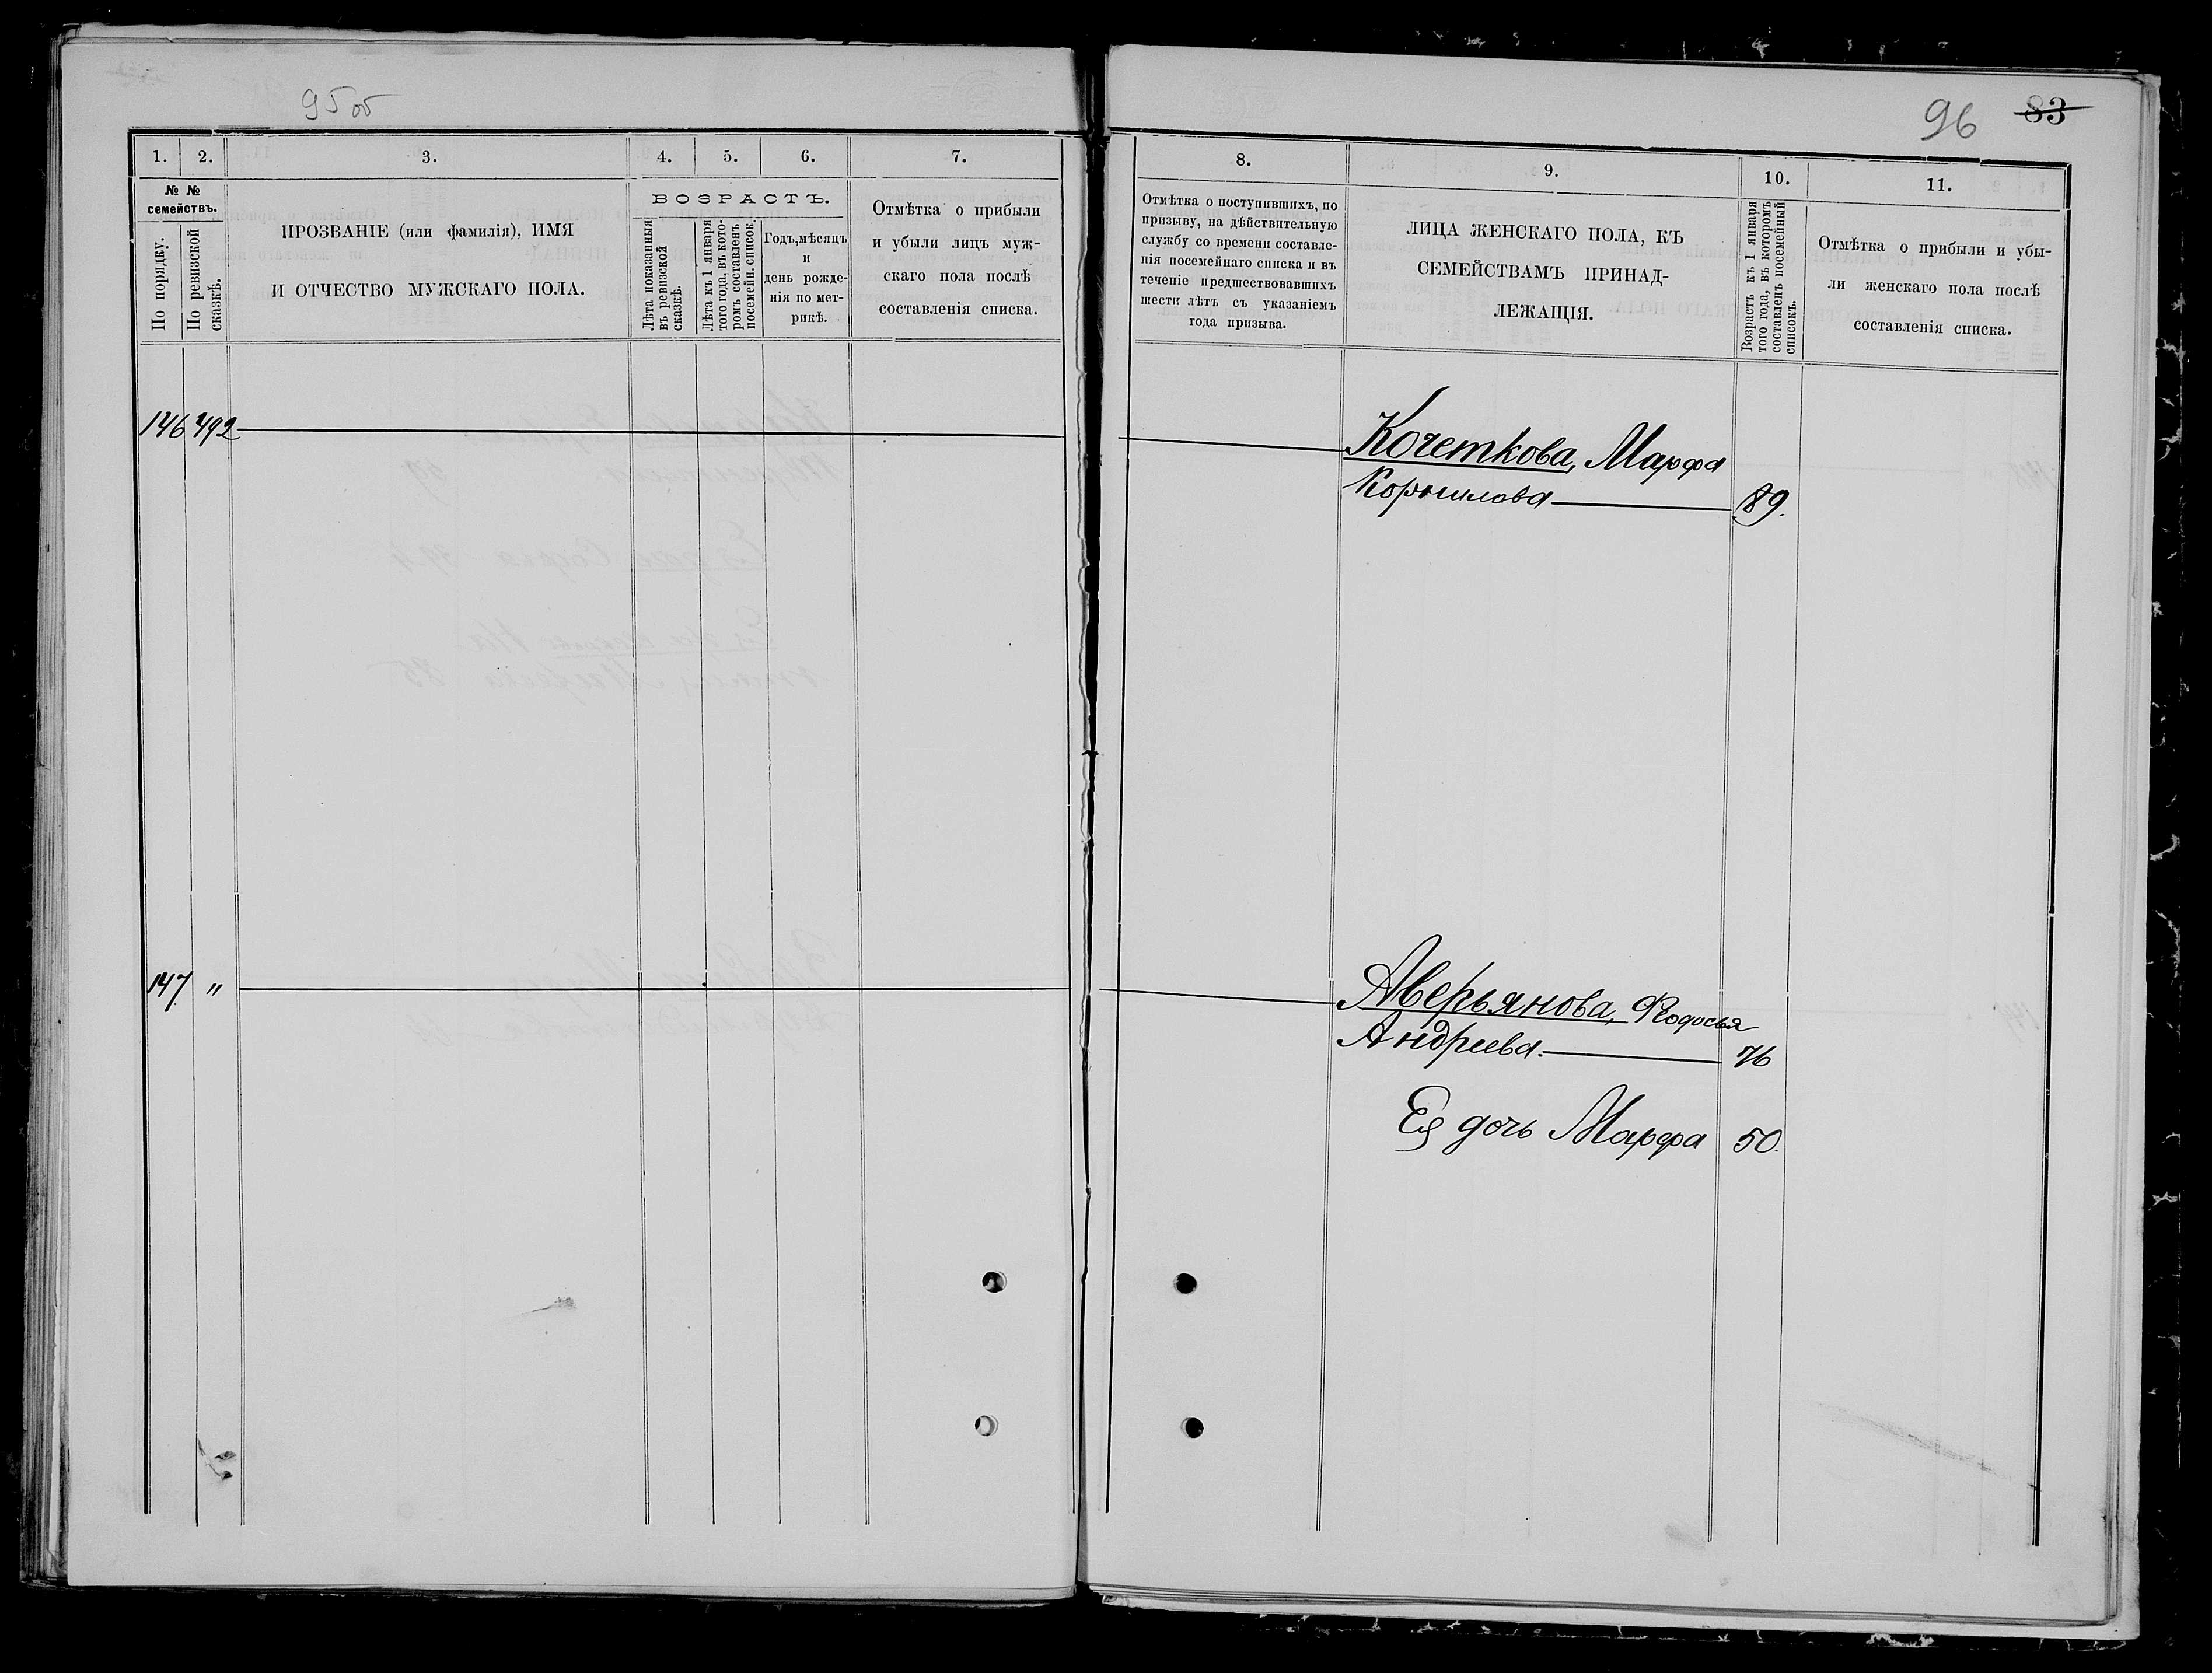 95об
1. 2. 3. 4. 5. 6. 7.
№ №
семействъ.
По порядку.
По ревизской
сказкѣ.
ПРОЗВАНІЕ (или фамилія), ИМЯ
И ОТЧЕСТВО МУЖСКАГО ПОЛА.
ВОЗРАСТЪ.
Лѣта показанныя
въ ревизской
сказкѣ.
Лѣта къ 1 января
того года, въ кото-
ромъ составленъ
посемейн. список.
Годъ, мѣсяцъ
и
день рожде-
нія по мет-
рикѣ.
Отмѣтка о прибыли
и убыли лицъ муж-
скаго пола послѣ
составленія списка.
146 492
147 "
96 83
8. 9. 10. 11.
Отмѣтка о поступившихъ, по
призыву, на дѣйствительную
службу со времени составле-
нія посемейнаго списка и въ
теченіе предшествовавшихъ
шести лѣтъ съ указаніемъ
года призыва.
ЛИЦА ЖЕНСКАГО ПОЛА, КЪ
СЕМЕЙСТВАМЪ ПРИНАД-
ЛЕЖАЩІЯ.
Возрастъ къ 1 января
того года, въ которомъ
составленъ посемейный
списокъ.
Отмѣтка о прибыли и убы-
ли женскаго пола послѣ
составленія списка.
Кочеткова, Марфа
Корнилова 89.
Аверьянова, Ѳеодосья
Андреева 76
Ея дочь Марфа 50.